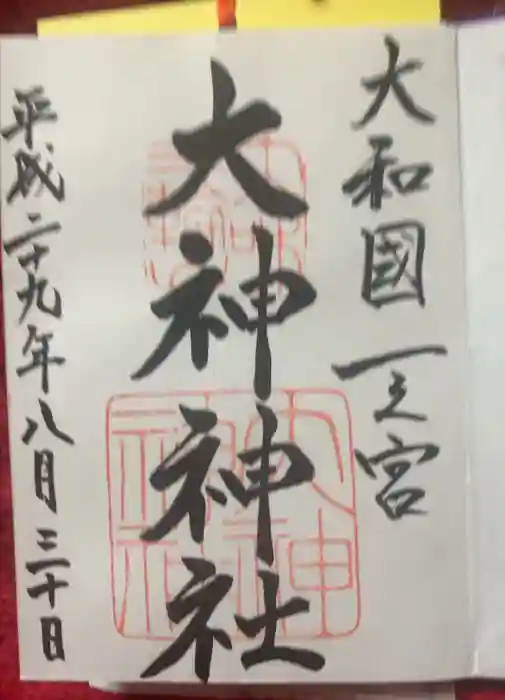 大和國一之宮
大神神社
平成二十九年八月三十日